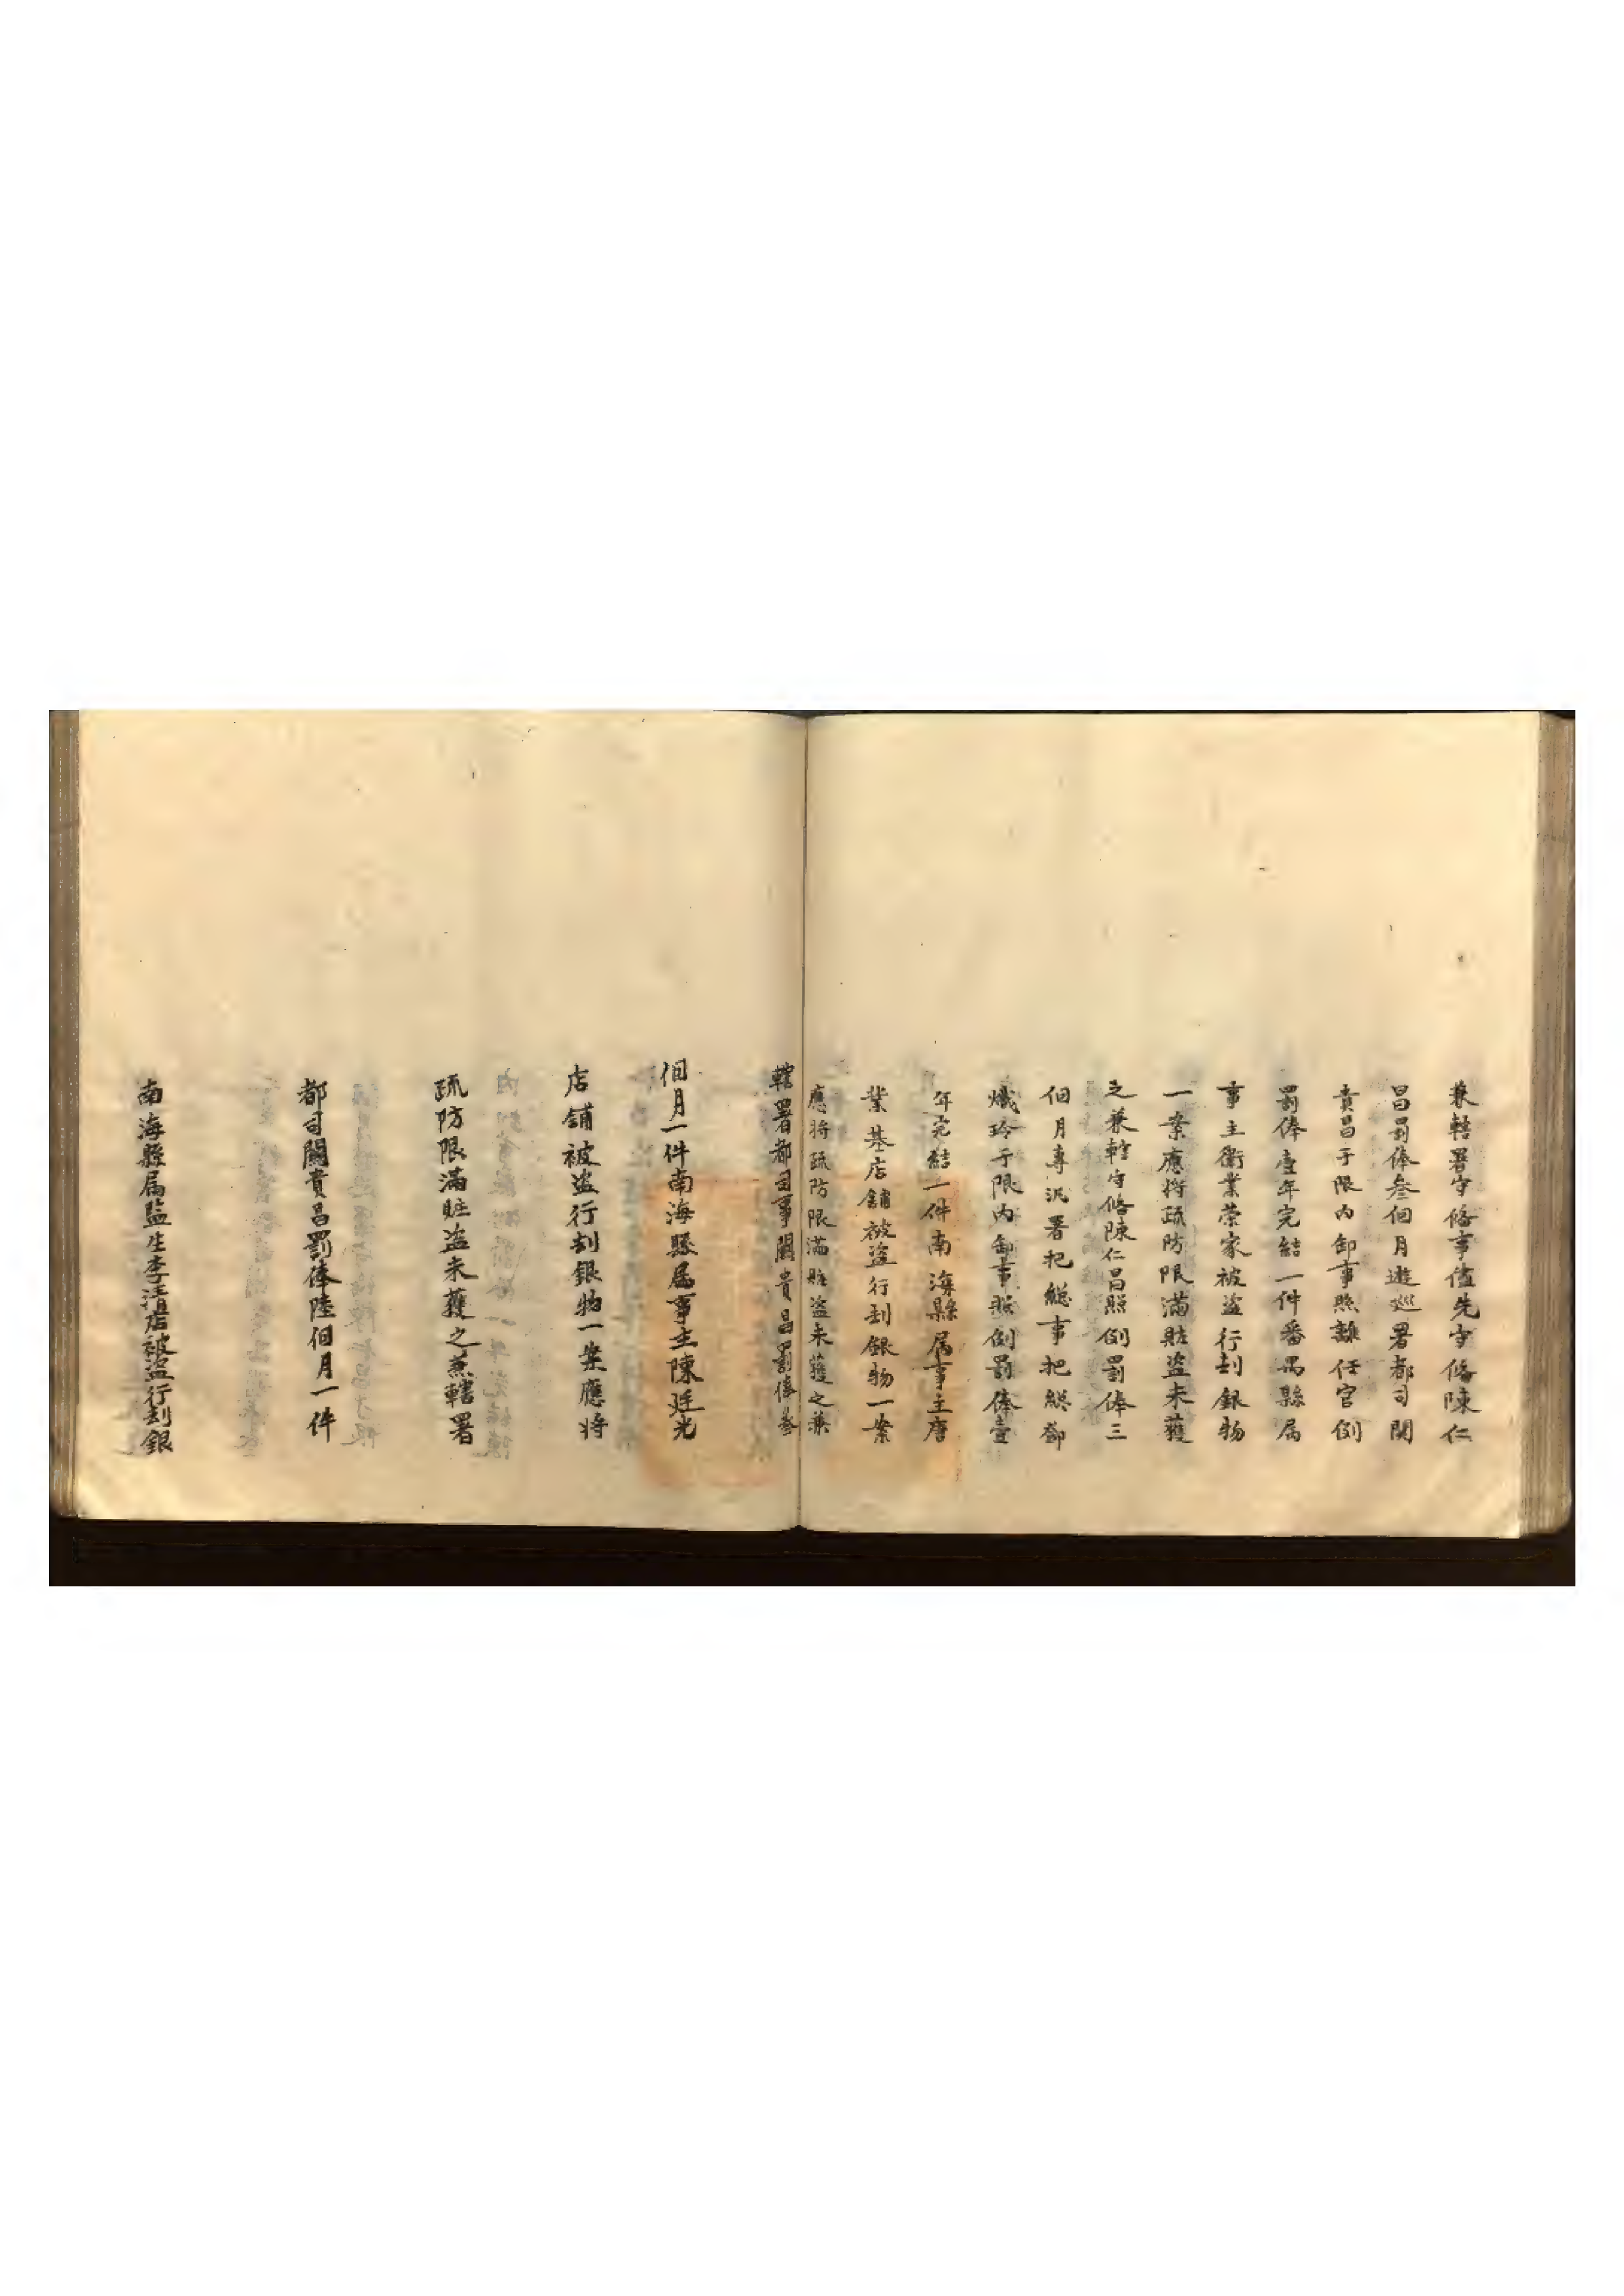 兼轄署守俻事儘先守俻陳仁
昌罰俸叁個月遊巡署都司関
貴昌于限內卸事照離任官例
罰俸壹年完結一件番禺縣属
事主衛業荣家被盜行刦銀物
一案應将疏防限滿賍盜未獲
之兼轄守俻陳仁昌照例罰俸三
個月專汛署把總事把總鄧
熾玲于限內卸事照例罰俸壹
年完結一件南海縣属事主唐
業基店舖被盜行刦銀物一案
應將疏防限滿賍盜未獲之兼
轄署都司事關貴昌罰俸叁
個月一件南海縣属事主陳廷光
店舖被盜行刦銀物一案應将
疏防限滿賍盜未獲之兼轄署
都司關貴昌罰俸陸個月一件
南海縣属監生李店被盜行刦銀